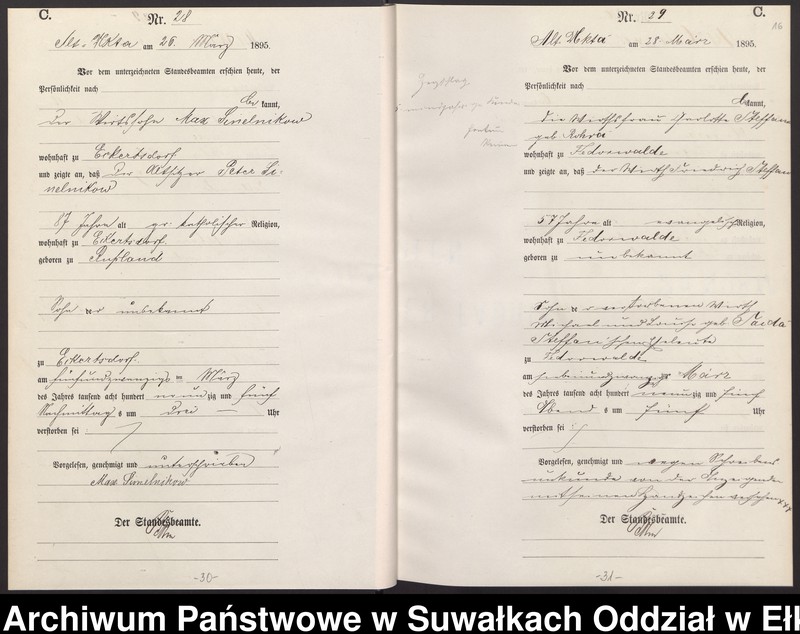 C.
Nr. 28
Alt-Ukta am 26. März 1895.
Vor dem unterzeichneten Standesbeamten erschien heute, der
Persönlichkeit nach
be kannt,
der Wirthssohn Max Sinelnikow
wohnhaft zu Eckertsdorf
und zeigte an, daß der Altsitzer Peter Si-
nelnikow
87 Jahre alt gr. katholischer Religion,
wohnhaft zu Eckertsdorf
geboren zu Rußland
Sohn der unbekannt
zu Eckertsdorf
am fünfundzwanzigsten März
des Jahres tausend acht hundert neunzig und fünf
Nachmittags um drei Uhr
verstorben sei
Vorgelesen, genehmigt und unterschrieben
Max Sinelnikow
Der Standesbeamte.
-30-
C.
16
Nr. 29
Alt-Ukta am 28. März 1895.
Vor dem unterzeichneten Standesbeamten erschien heute, der
Persönlichkeit nach
bekannt,
die Wirthsfrau Charlotte Steffan
geb.
wohnhaft zu Fedorwalde
und zeigte an, daß der Wirth Friedrich Steffan
57 Jahre alt evangelisch Religion,
wohnhaft zu Fedorwalde
geboren zu unbekannt
Sohn der verstorbenen Wirth
Michael und Louise geb.
Steffan'schen Eheleute
zu Fedorwalde
am siebenundzwanzigsten März
des Jahres tausend acht hundert neunzig und fünf
Abends um fünf Uhr
verstorben sei
Vorgelesen, genehmigt und wegen Schreibens
unkunde von der Anzeigenden
mit ihrem Handzeichen versehen xxx
Der Standesbeamte.
-31-
Archiwum Państwowe w Suwałkach Oddział w Eł